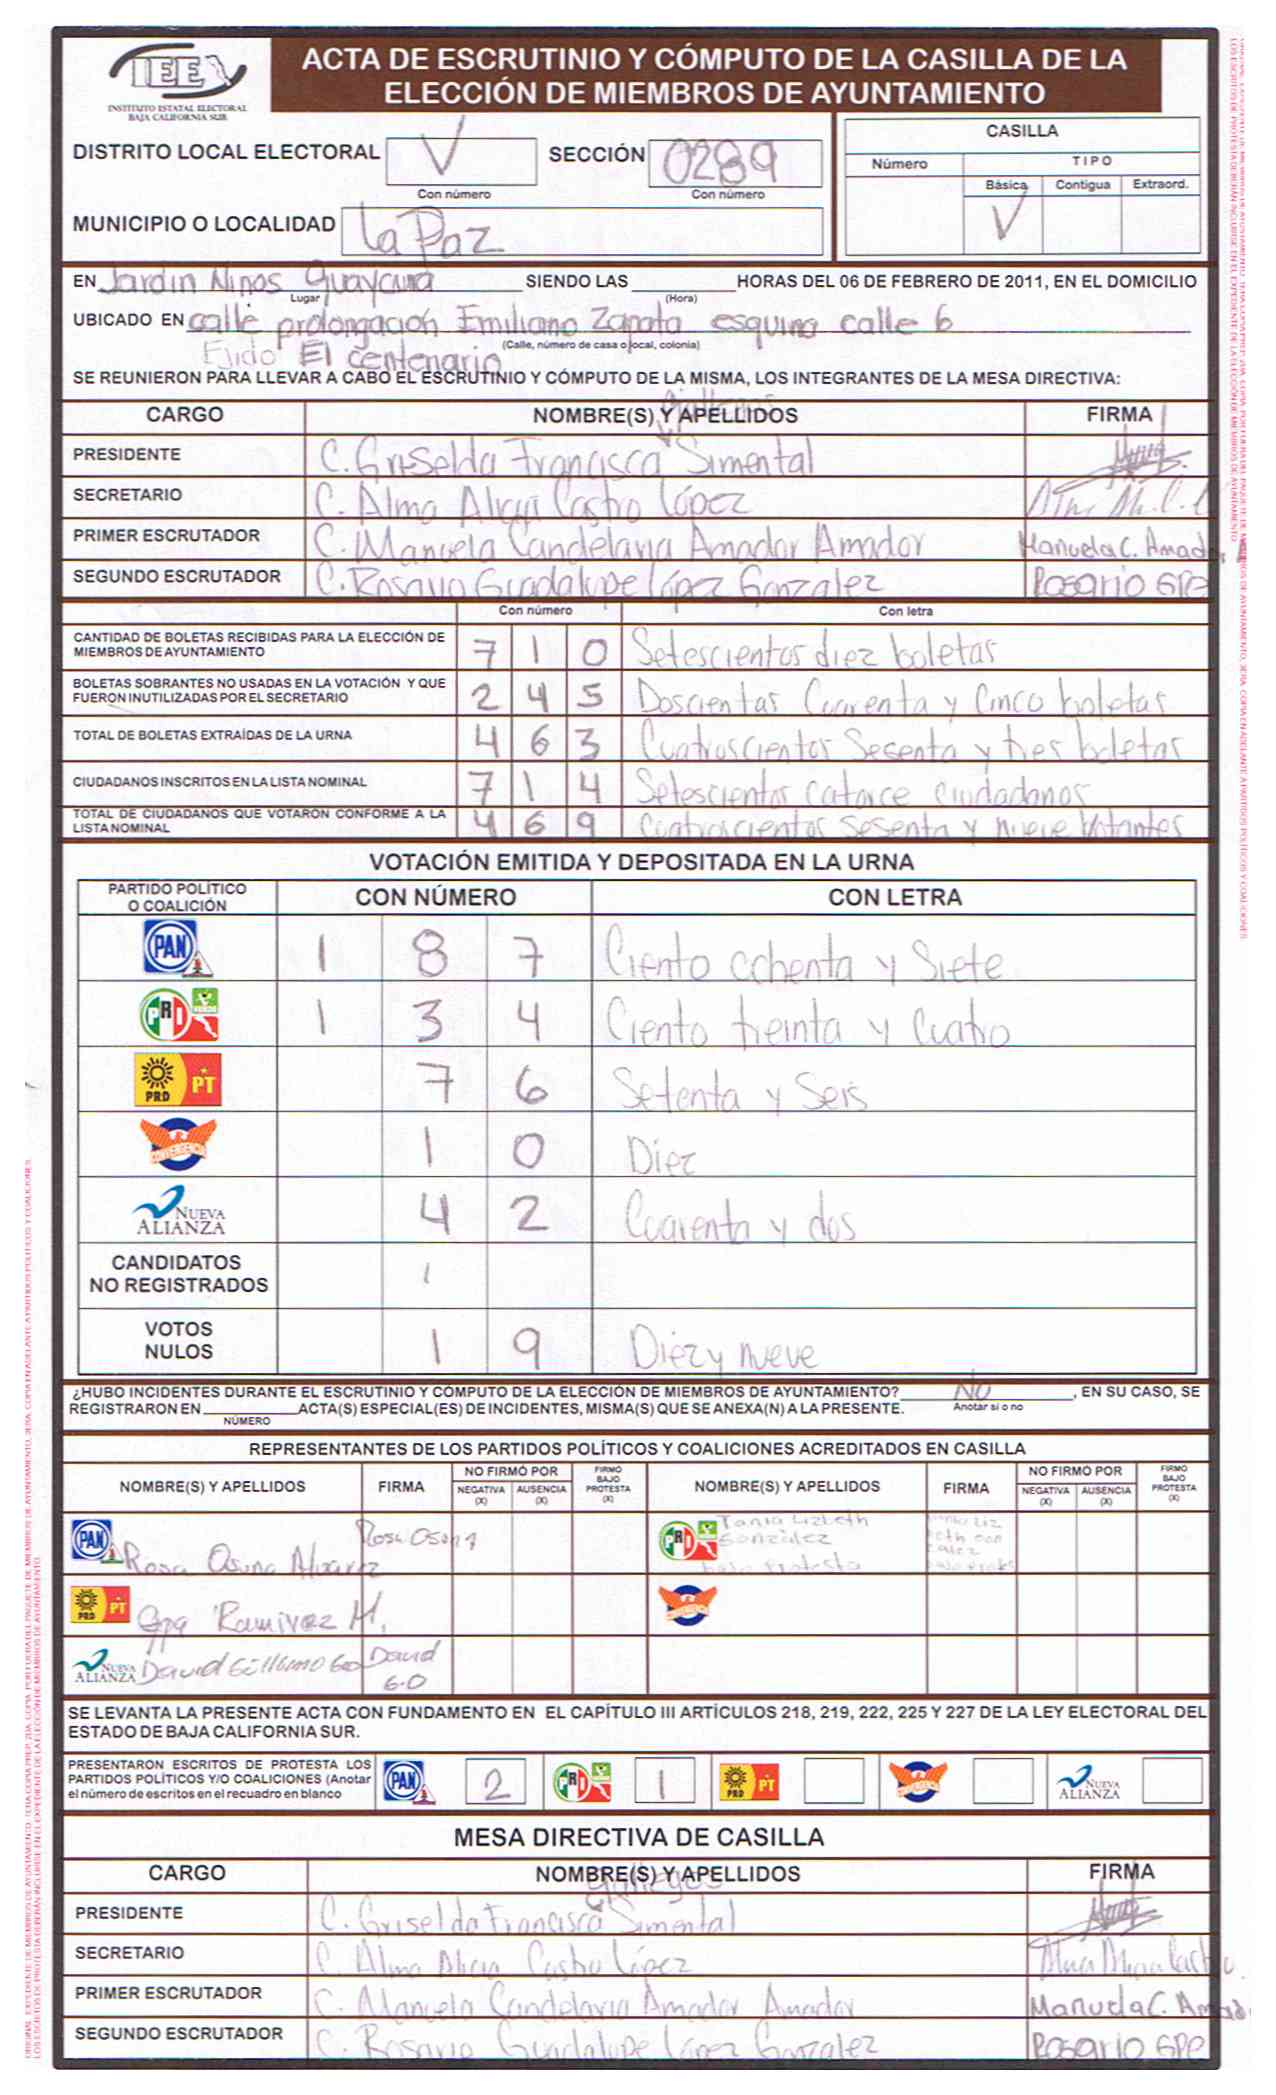 IEE
INSTITUTO ESTATAL ELECTORAL
BAJA CALIFORNIA SUR
ACTA DE ESCRUTINIO Y CÓMPUTO DE LA CASILLA DE LA
ELECCIÓN DE MIEMBROS DE AYUNTAMIENTO
DISTRITO LOCAL ELECTORAL V SECCIÓN 0289
Con número Con número
CASILLA
Número TIPO
Básica Contigua Extraord.
V
MUNICIPIO O LOCALIDAD La Paz
EN Jardin Niños Guaycura SIENDO LAS HORAS DEL 06 DE FEBRERO DE 2011, EN EL DOMICILIO
Lugar (Hora)
UBICADO EN calle prolongación Emiliano Zapata esquina calle 6
(Calle, número de casa o local, colonia)
Ejido El centenario
SE REUNIERON PARA LLEVAR A CABO EL ESCRUTINIO Y CÓMPUTO DE LA MISMA, LOS INTEGRANTES DE LA MESA DIRECTIVA:
CARGO NOMBRE(S) Y APELLIDOS FIRMA
PRESIDENTE C. Griselda Francisca Gallegos Simental
SECRETARIO C. Alma Alicia Castro López
PRIMER ESCRUTADOR C. Manuela Candelaria Amador Amador Manuela C. Amador A
SEGUNDO ESCRUTADOR C. Rosario Guadalupe López Gonzalez Rosario GPE
Con número Con letra
CANTIDAD DE BOLETAS RECIBIDAS PARA LA ELECCIÓN DE
MIEMBROS DE AYUNTAMIENTO 7 1 0 Setescientos diez boletas
BOLETAS SOBRANTES NO USADAS EN LA VOTACIÓN Y QUE
FUERON INUTILIZADAS POR EL SECRETARIO 2 4 5 Doscientas Cuarenta y Cinco boletas
TOTAL DE BOLETAS EXTRAÍDAS DE LA URNA 4 6 3 Cuatroscientos Sesenta y tres boletas
CIUDADANOS INSCRITOS EN LA LISTA NOMINAL 7 1 4 Setescientos catorce ciudadanos
TOTAL DE CIUDADANOS QUE VOTARON CONFORME A LA
LISTA NOMINAL 4 6 9 Cuatroscientos sesenta y nueve votantes
VOTACIÓN EMITIDA Y DEPOSITADA EN LA URNA
PARTIDO POLÍTICO
O COALICIÓN CON NÚMERO CON LETRA
PAN 1 8 7 Ciento ochenta y Siete
PRI VERDE 1 3 4 Ciento treinta y Cuatro
PRD PT 7 6 Setenta y Seis
CONVERGENCIA 1 0 Diez
NUEVA ALIANZA 4 2 Cuarenta y dos
CANDIDATOS
NO REGISTRADOS 1
VOTOS
NULOS 1 9 Diez y nueve
¿HUBO INCIDENTES DURANTE EL ESCRUTINIO Y CÓMPUTO DE LA ELECCIÓN DE MIEMBROS DE AYUNTAMIENTO? No, EN SU CASO, SE
REGISTRARON EN ACTA(S) ESPECIAL(ES) DE INCIDENTES, MISMA(S) QUE SE ANEXA(N) A LA PRESENTE. Anotar sí o no
NÚMERO
REPRESENTANTES DE LOS PARTIDOS POLÍTICOS Y COALICIONES ACREDITADOS EN CASILLA
NOMBRE(S) Y APELLIDOS FIRMA NO FIRMÓ POR NEGATIVA (X) AUSENCIA (X) FIRMÓ BAJO PROTESTA (X) NOMBRE(S) Y APELLIDOS FIRMA NO FIRMO POR NEGATIVA (X) AUSENCIA (X) FIRMO BAJO PROTESTA (X)
PAN Rosa Osuna Alvarez Rosa Osuna PRI Tania Lizbeth
González
bajo Protesta
PRD PT Gpe Ramirez M.
NUEVA ALIANZA David Guillermo G.O David
G.O
SE LEVANTA LA PRESENTE ACTA CON FUNDAMENTO EN EL CAPÍTULO III ARTÍCULOS 218, 219, 222, 225 Y 227 DE LA LEY ELECTORAL DEL
ESTADO DE BAJA CALIFORNIA SUR.
PRESENTARON ESCRITOS DE PROTESTA LOS
PARTIDOS POLÍTICOS Y/O COALICIONES (Anotar
el número de escritos en el recuadro en blanco
PAN 2 PRI 1 PRD PT CONVERGENCIA NUEVA ALIANZA
MESA DIRECTIVA DE CASILLA
CARGO NOMBRE(S) Y APELLIDOS FIRMA
PRESIDENTE C. Griselda Francisca Gallegos Simental
SECRETARIO C. Alma Alicia Castro López Alma Alicia Castro
PRIMER ESCRUTADOR C. Manuela Candelaria Amador Amador Manuela C. Amad
SEGUNDO ESCRUTADOR C. Rosario Guadalupe López Gonzalez Rosario GPE